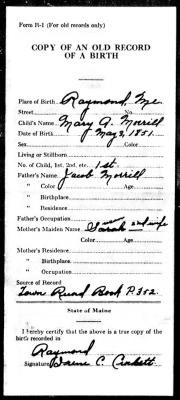 Form R-1 (For old records only)
COPY OF AN OLD RECORD
OF A BIRTH
Place of Birth Raymond, Me.
Street No.
Child's Name Mary A. Morrill
Date of Birth May 3, 1851.
Sex Color
Living or Stillborn
No. of Child, 1st, 2nd, etc. 1st.
Father's Name Jacob Morrill
" Color Age
" Birthplace
" Residence
Father's Occupation
Mother's Maiden Name Sarah 2nd wife
Color Age
Mother's Residence
" Birthplace
" Occupation
Source of Record
Town Record Book P 352.
State of Maine
I hereby certify that the above is a true copy of the
birth recorded in
Raymond
Signature C. Crockett